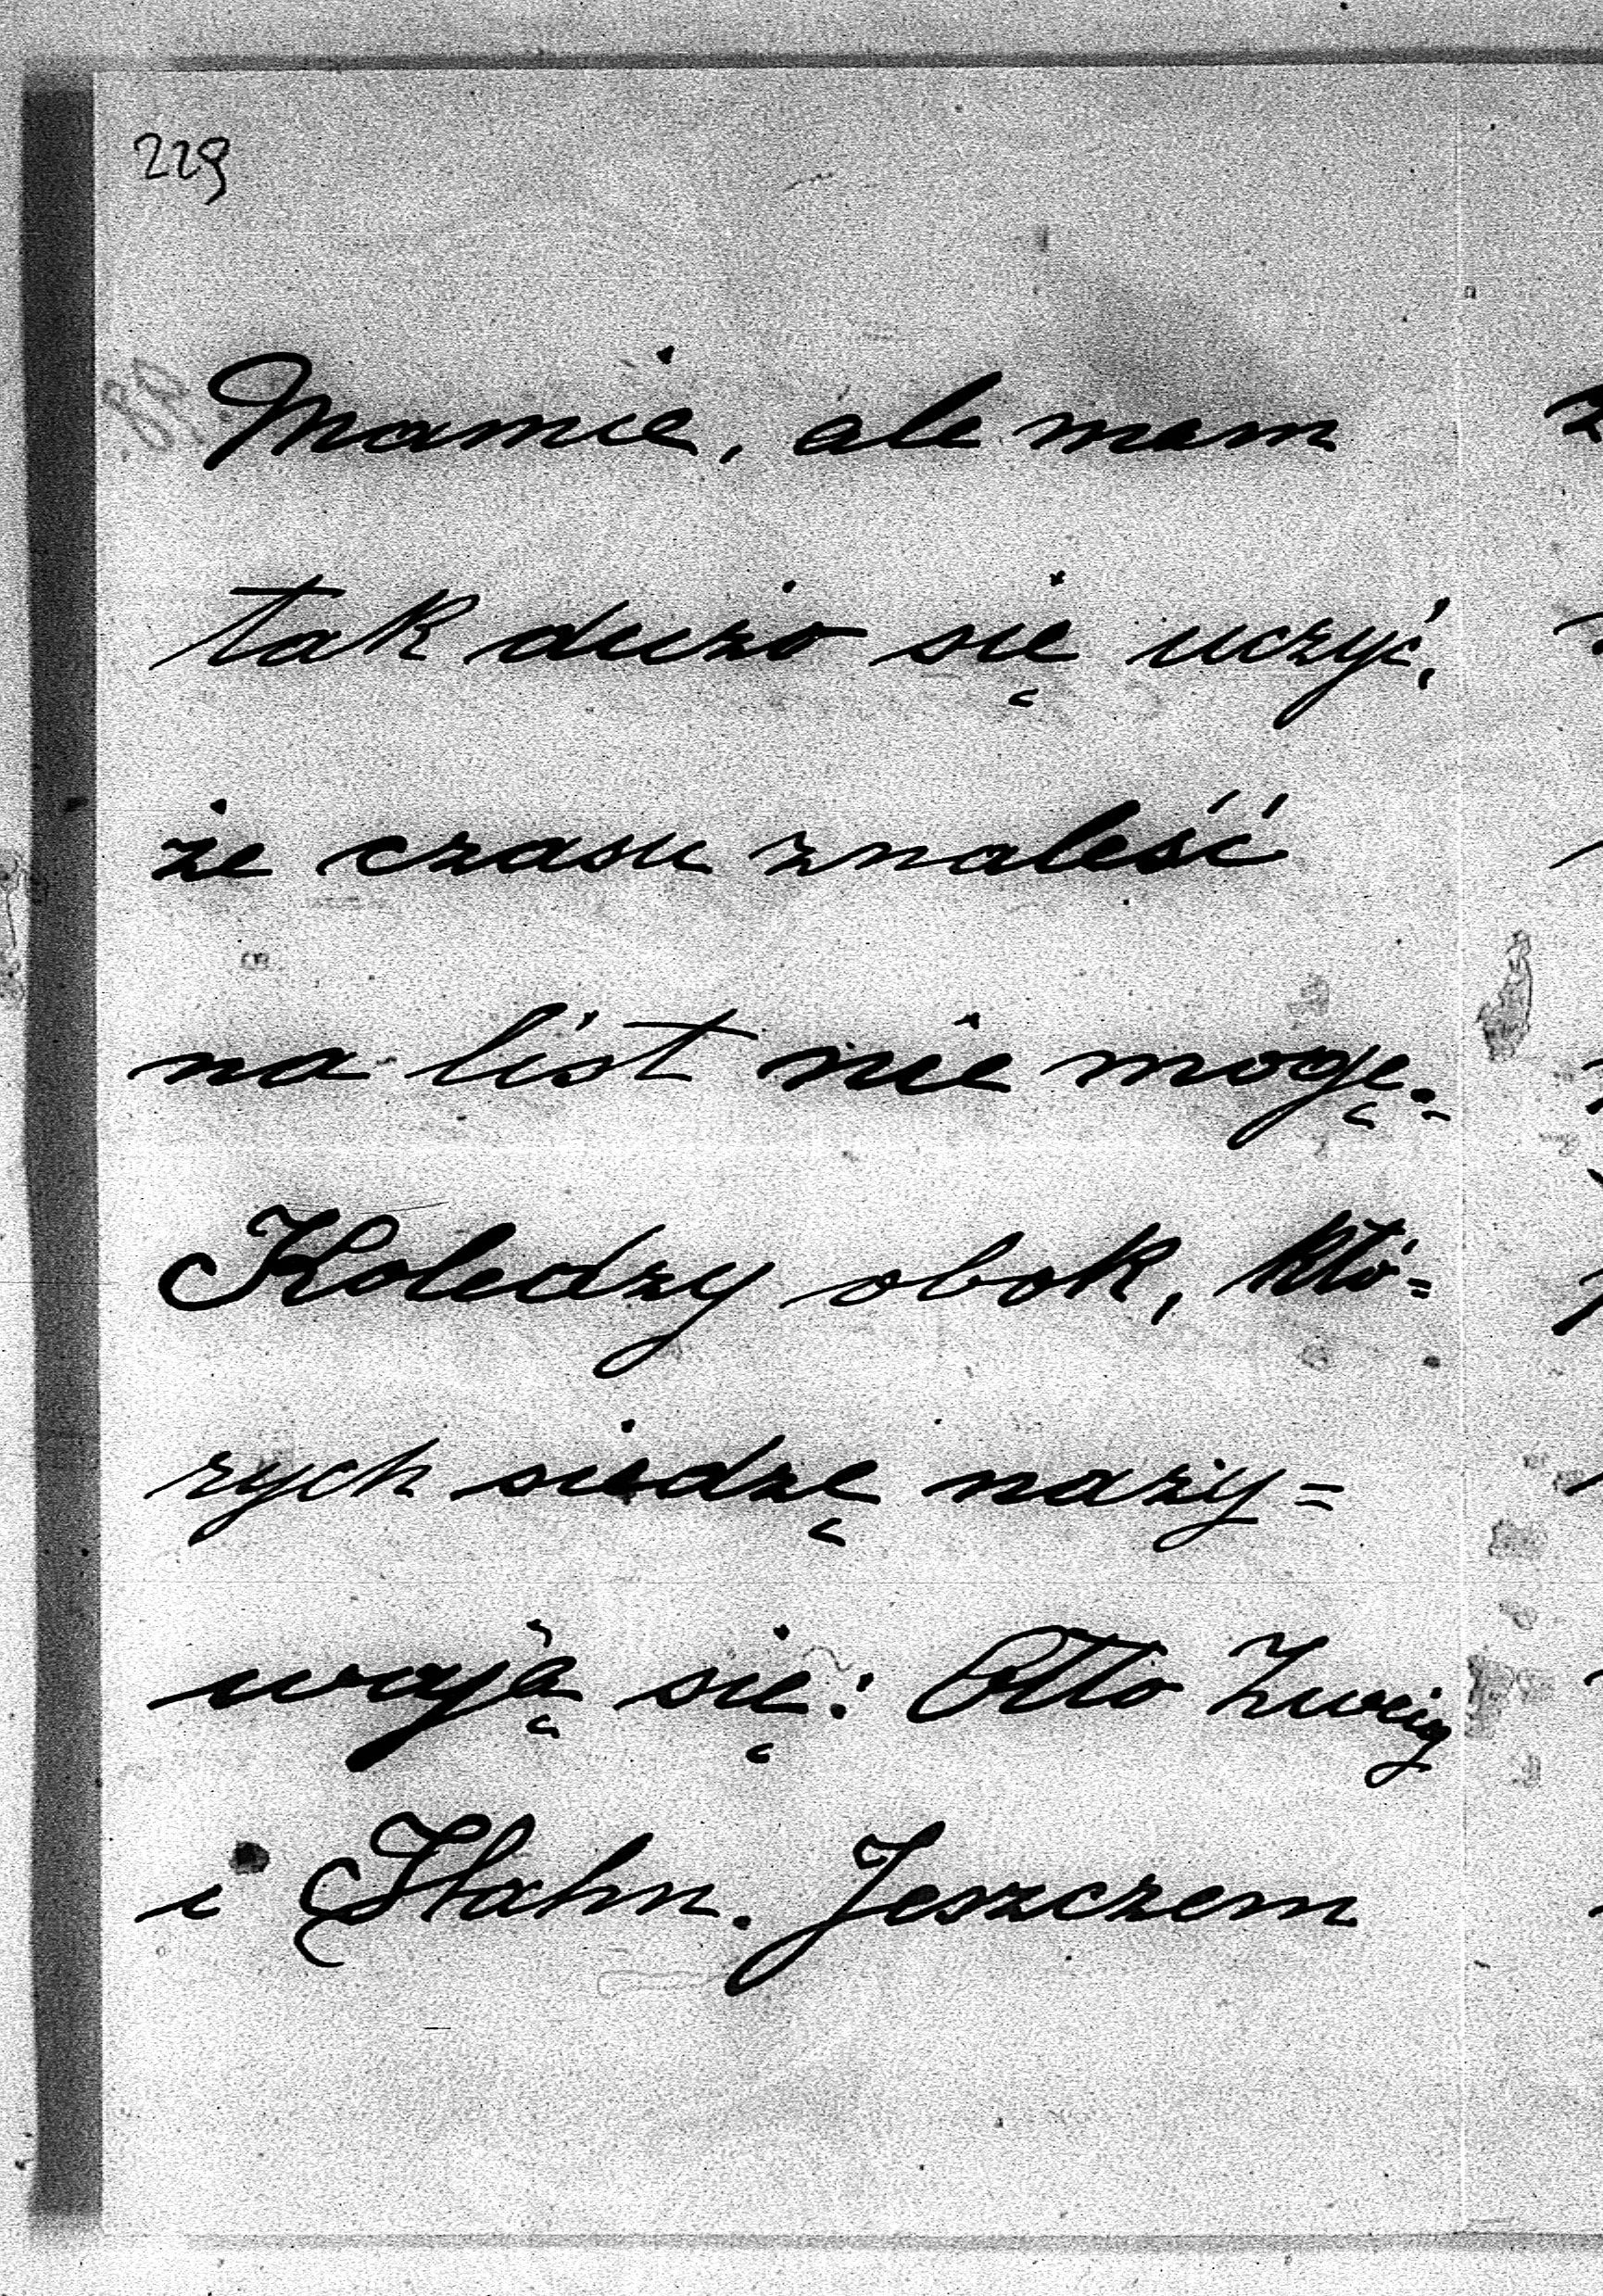 229
Mamie, ale mam
tak dużo się uczyć,
że czasu znaleść
na list nie mogę.
Koledzy obok, któ=
rych siedzę nazy=
wają się: Otto Zweig
i Hahn. Jeszczem